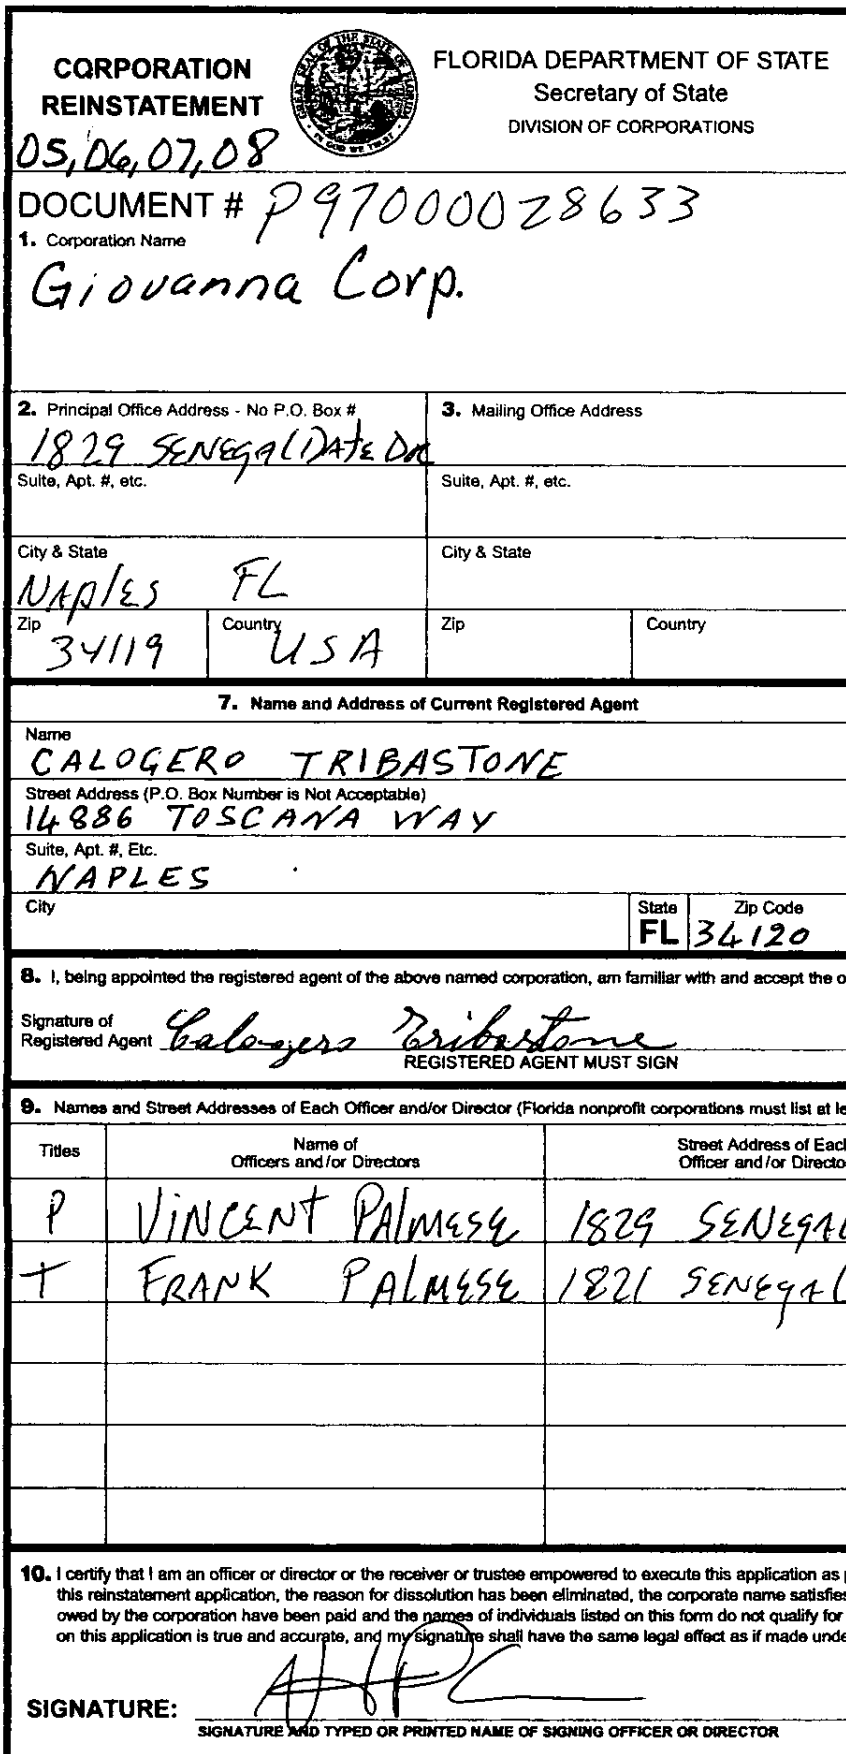 CORPORATION
REINSTATEMENT
05,06,07,08
GREAT SEAL OF THE STATE OF FLORIDA
IN GOD WE TRUST
FLORIDA DEPARTMENT OF STATE
Secretary of State
DIVISION OF CORPORATIONS
DOCUMENT # P97000028633
1. Corporation Name
Giovanna Corp.
2. Principal Office Address - No P.O. Box #
1829 SENEGAL DATE DR
3. Mailing Office Address
Suite, Apt. #, etc.
Suite, Apt. #, etc.
City & State
NAPLES FL
City & State
Zip
34119
Country
USA
Zip
Country
7. Name and Address of Current Registered Agent
Name
CALOGERO TRIBASTONE
Street Address (P.O. Box Number is Not Acceptable)
14886 TOSCANA WAY
Suite, Apt. #, Etc.
NAPLES
City
State
FL
Zip Code
34120
8. I, being appointed the registered agent of the above named corporation, am familiar with and accept the o
Signature of
Registered Agent Calogero Tribastone
REGISTERED AGENT MUST SIGN
9. Names and Street Addresses of Each Officer and/or Director (Florida nonprofit corporations must list at le
Titles
Name of
Officers and/or Directors
Street Address of Each
Officer and/or Directo
P VINCENT PALMESE 1829 SENEGAL
T FRANK PALMESE 1821 SENEGAL
10. I certify that I am an officer or director or the receiver or trustee empowered to execute this application as p
this reinstatement application, the reason for dissolution has been eliminated, the corporate name satisfies
owed by the corporation have been paid and the names of individuals listed on this form do not qualify for
on this application is true and accurate, and my signature shall have the same legal effect as if made unde
SIGNATURE:
SIGNATURE AND TYPED OR PRINTED NAME OF SIGNING OFFICER OR DIRECTOR